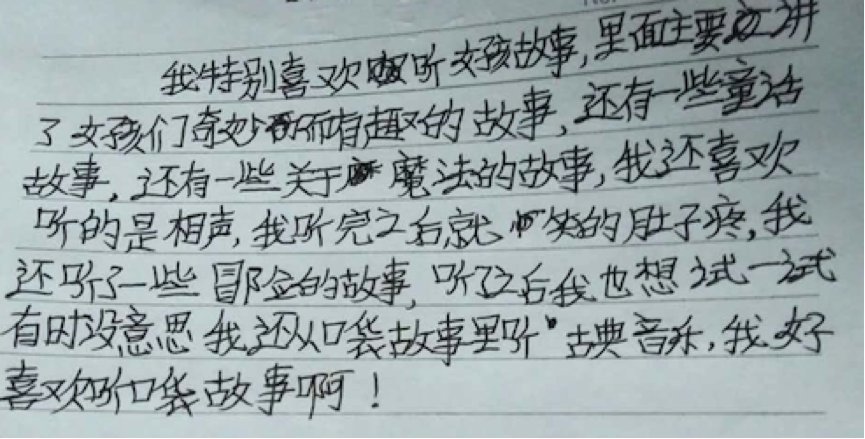 我特别喜欢听女孩故事,里面主要讲
了女孩们奇妙而有趣的故事,还有一些童话
故事,还有一些关于魔法的故事,我还喜欢
听的是相声,我听完之后就笑的肚子疼,我
还听了一些冒险的故事,听了之后我也想试一试
有时没意思我还从口袋故事里听古典音乐,我好
喜欢听口袋故事啊!